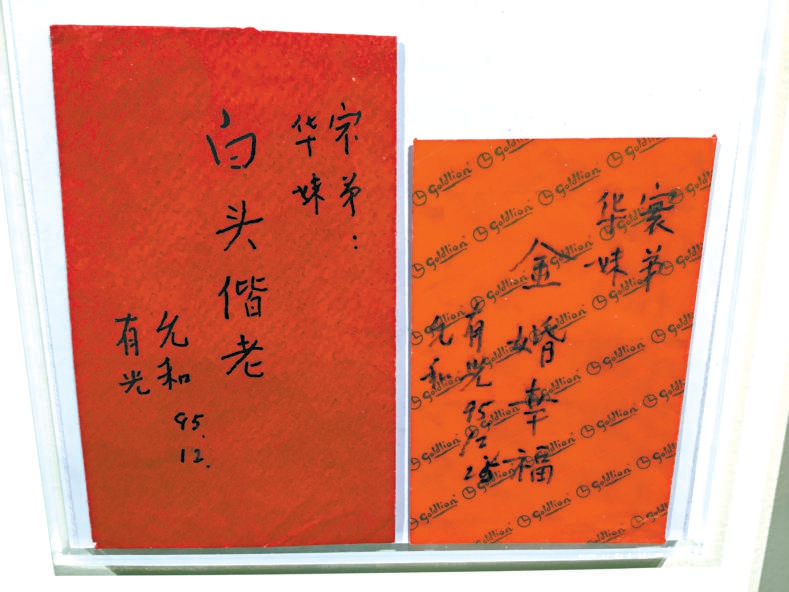 弟：
华妹
白头偕老
允和
有光
95.
12.
寰弟
华妹
金婚幸福
有光
95
12
允和
Goldlion Goldlion Goldlion Goldlion
Goldlion Goldlion Goldlion Goldlion
Goldlion Goldlion Goldlion Goldlion
Goldlion Goldlion Goldlion Goldlion
Goldlion Goldlion Goldlion Goldlion
Goldlion Goldlion Goldlion Goldlion